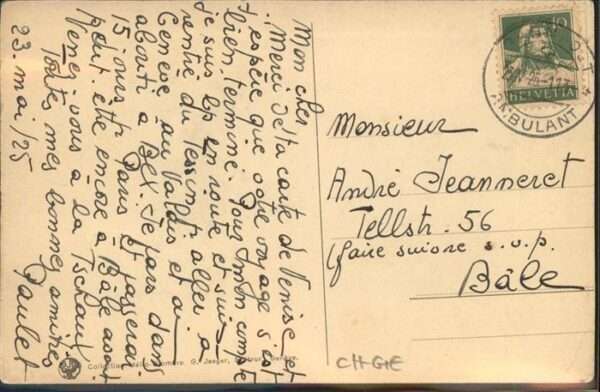 Mon cher
Merci de ta carte de Venise et
j'espère que votre voyage s'est
bien terminé. Pour mon compte
je suis en route et suis
rentré du Tessin, aller à
Genève, au Valais et a-
bouti à Bex. Je pars dans
15 jours p. Paris et passerai
peut être encore à Bâle avant
Venez-vous à la Tschaux
Toutes mes bonnes amitiés
23. mai/25 Paulet
10
HELVETIA
AMBULANT
Monsieur
André Jeanneret
Tellstr. 56
(faire suivre s.v.p.
Bâle
CH-GE
G. Jaeger,